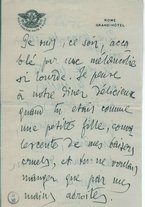 ROME
GRAND-HÔTEL
Je suis, ce soir, acca-
blé par une mélancolie
si lourde. Je pense
à notre dîner délicieux
quand tu étais comme
une petite fille,
de mes baisers
cruels, et tu ne voulais
manger que par mes
mains adroites.